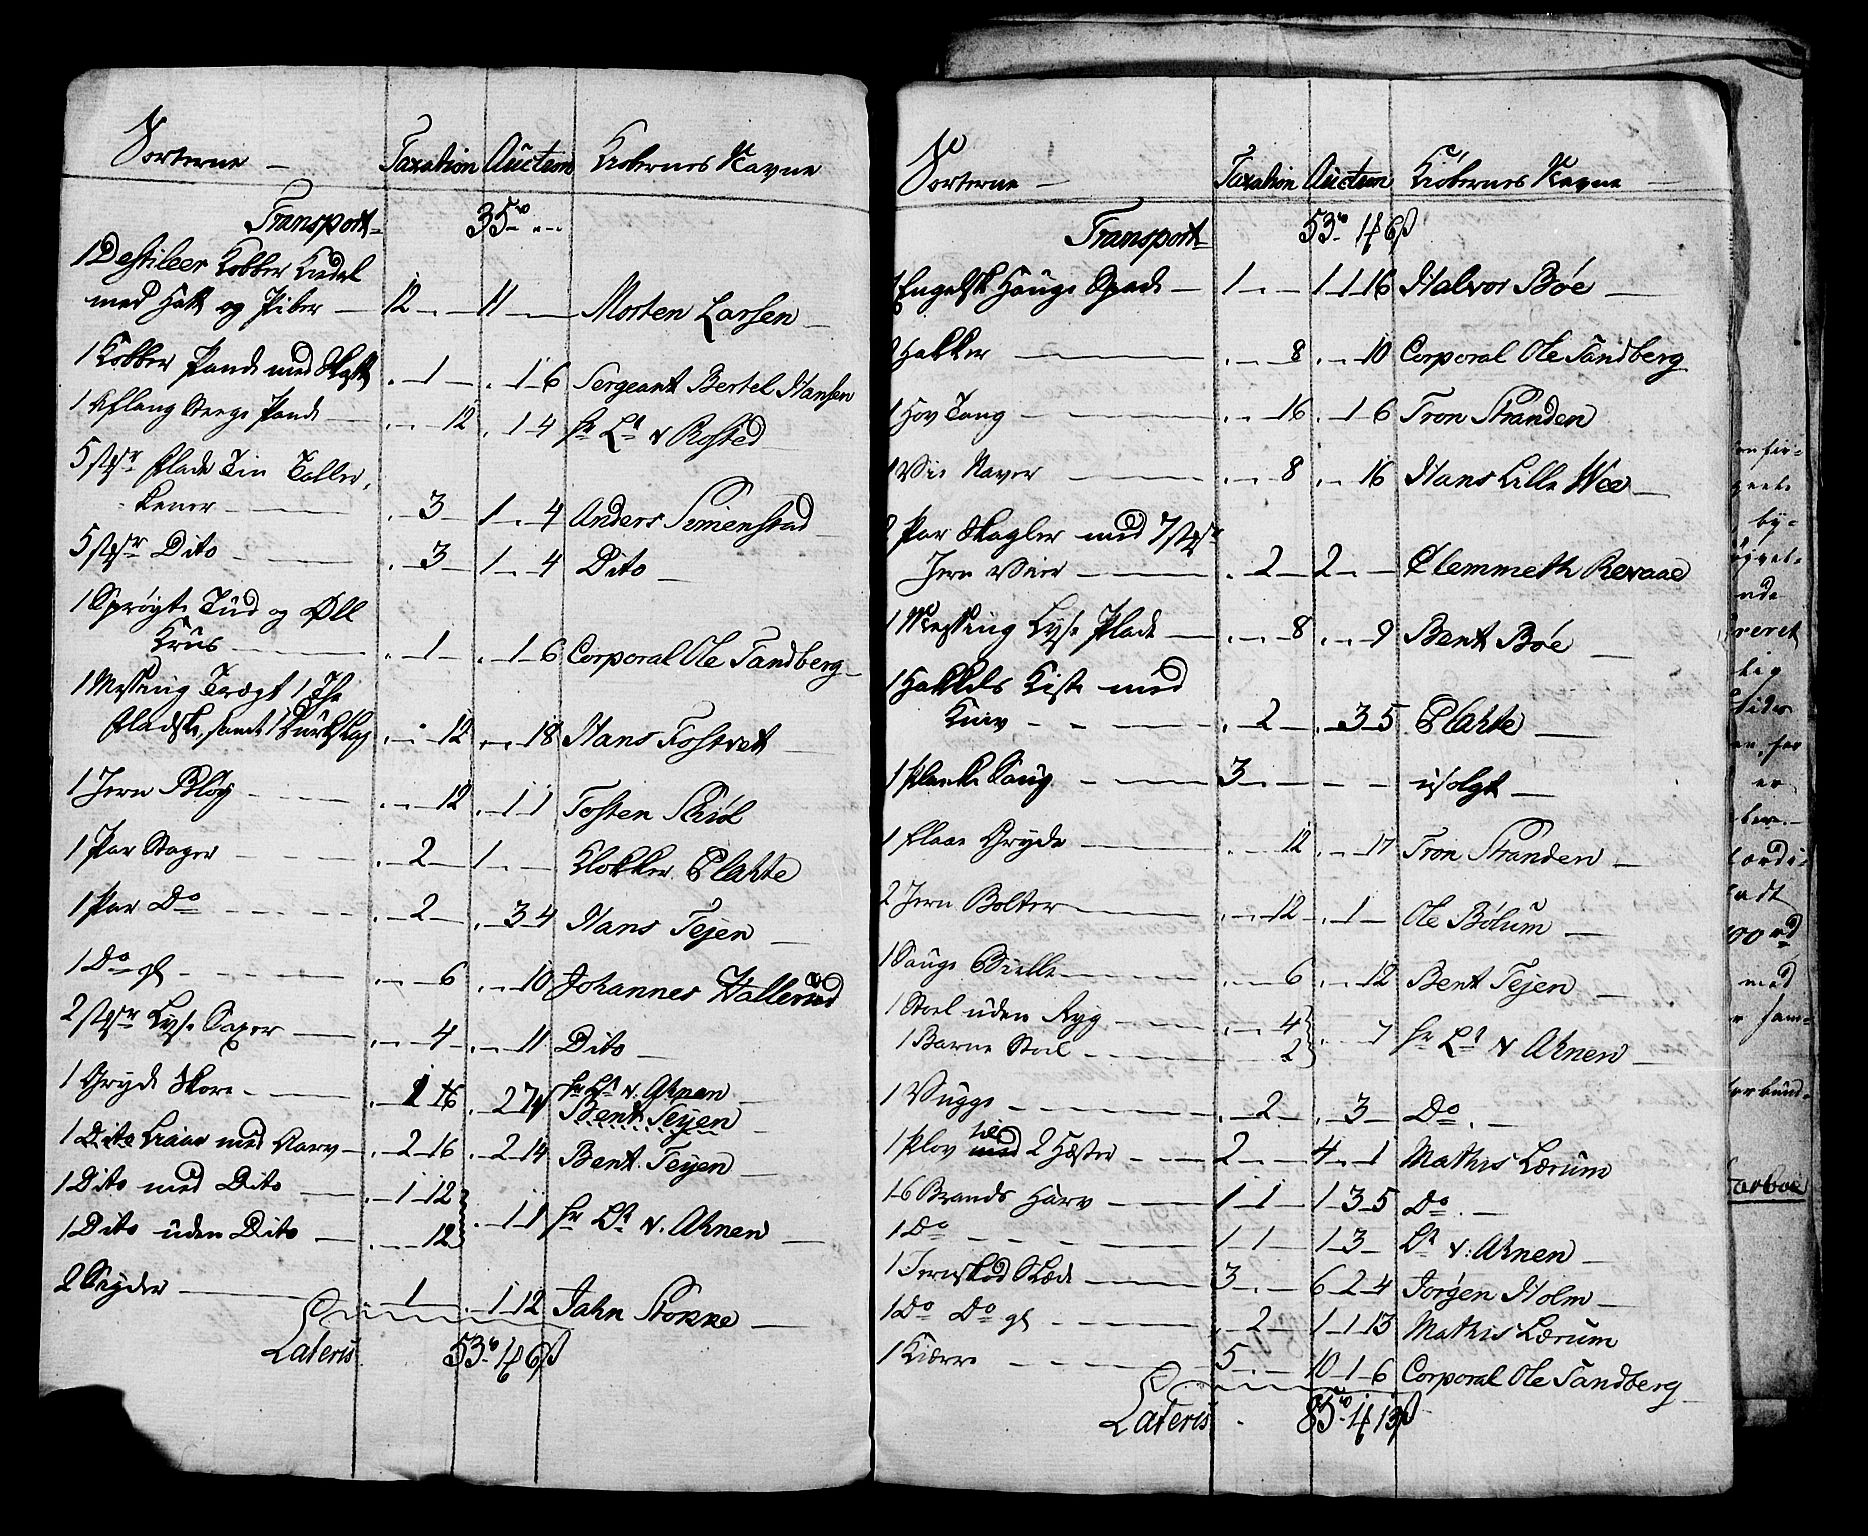 Sorterne — Taxation Auction Kiøbernes Navne
Transport 35 rd - - -
1 Destileer Kobber Kiedel
med Hatt og Piber — 12 - - 11 - - Morten Larsen —
1 Kobber Pande med Skaft - 1 - - 1 - 6 Sergeant Bertel Hansen
1 Aflang Steege Pande — - - 12 - 1 4 hr Lt v Rosted
5 stkr flade Tin Taller-
kener — - 3 - 1 - 4 Anders Simenstad
5 stkr Dito — - 3 - 1 - 4 Dito —
1 Sprøgte Tüd og Øll
Krüs — - 1 - - 1 - 6 Corporal Ole Sandberg —
1 Messing Tragt 1 The
fladske, samt 1 - - 12 - - 18 Hans Fostvet —
1 Jern Bløy - - 12 - 1 1 Tosten Schiøl
1 Par Sager - 2 - 1 - - Klokker Plahte
1 Par Do - 2 - - 3 4 Hans Tejen —
1 Do gl - - 6 - - 10 Johannes Hallerüd
2 stkr Lyse Saxer — - - 4 - - 11 Dito —
1 Gryde Skore - 1 16 - 2 7 hr Lt v. Ahnen —
Bent Tejen
1 Dito Laaer med Aarv - 2 - 16 - 2 - 14 Bent Tejen —
1 Dito med Dito — - 1 - 12
1 Dito uden Dito — - - 12 - 1 1 hr Lt v. Ahnen —
2 Sigder — - 1 - - 1 - 12 Jahn Stokke —
Lateris 53 rd - 4 - 6 s
Sorterne — Taxation Auction Kiøbernes Navne —
Transport 53 rd - 4 6 s
1 Engelsk Hauge Spade — 1 - - 1 - 1 - 16 Halvor Bøe —
2 Hakker — - - 8 - - 10 Corporal Ole Sandberg
1 Hov Tang - - 16 - 1 6 Tron Stranden
1 Vie Naver - - 8 - - 16 Hans Lille Wee —
2 Par Skagler med 7 stkr
Jern Vier — - 2 - 2 - - Clemmeth Revaae
1 Messing Lyse Plade — - - 8 - - 9 Bent Bøe —
1 Hakkels Kiste med
Kniv - 2 - - 3 - 5 Plahte —
1 Planke Saug - 3 - - - - - usolgt —
1 flaae Gryde — - - 12 - - 17 Tron Stranden —
2 Jern Bolter — - - 12 - 1 - Ole Bølum —
1 Sauge Bielke — - - 6 - - 12 Bent Tejen —
1 Stoel uden Ryg - - 4
1 Barne Stoel - - 2 - - 7 hr Lt v Ahnen —
1 Vugge - 2 - - 3 - Do. —
1 Plov til 2 Hæster — 2 - - 4 - 1 Mathis Lærum
1 6 Brands Harv — 1 - 1 - 1 - 3 - 5 Do. —
1 Do 1 - 1 - 1 - 3 - Lt v: Ahnen —
1 Jernskod Slæde — 3 - - 6 - 2 - 4 Jørgen Holm —
1 Do Do gl - 2 - 1 - 1 - 13 Mathis Lærum
1 Kiærre - 5 - - 10 - 1 - 6 Corporal Ole Sandberg —
Lateris 85 rd - 4 13 s
by-
nde
tig
er
med